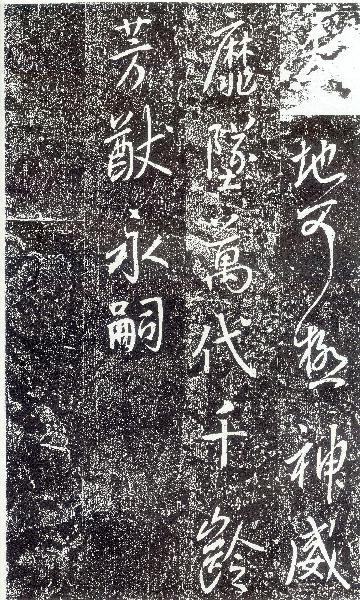 地可極神威
靡墜萬代千齡
芳猷永嗣